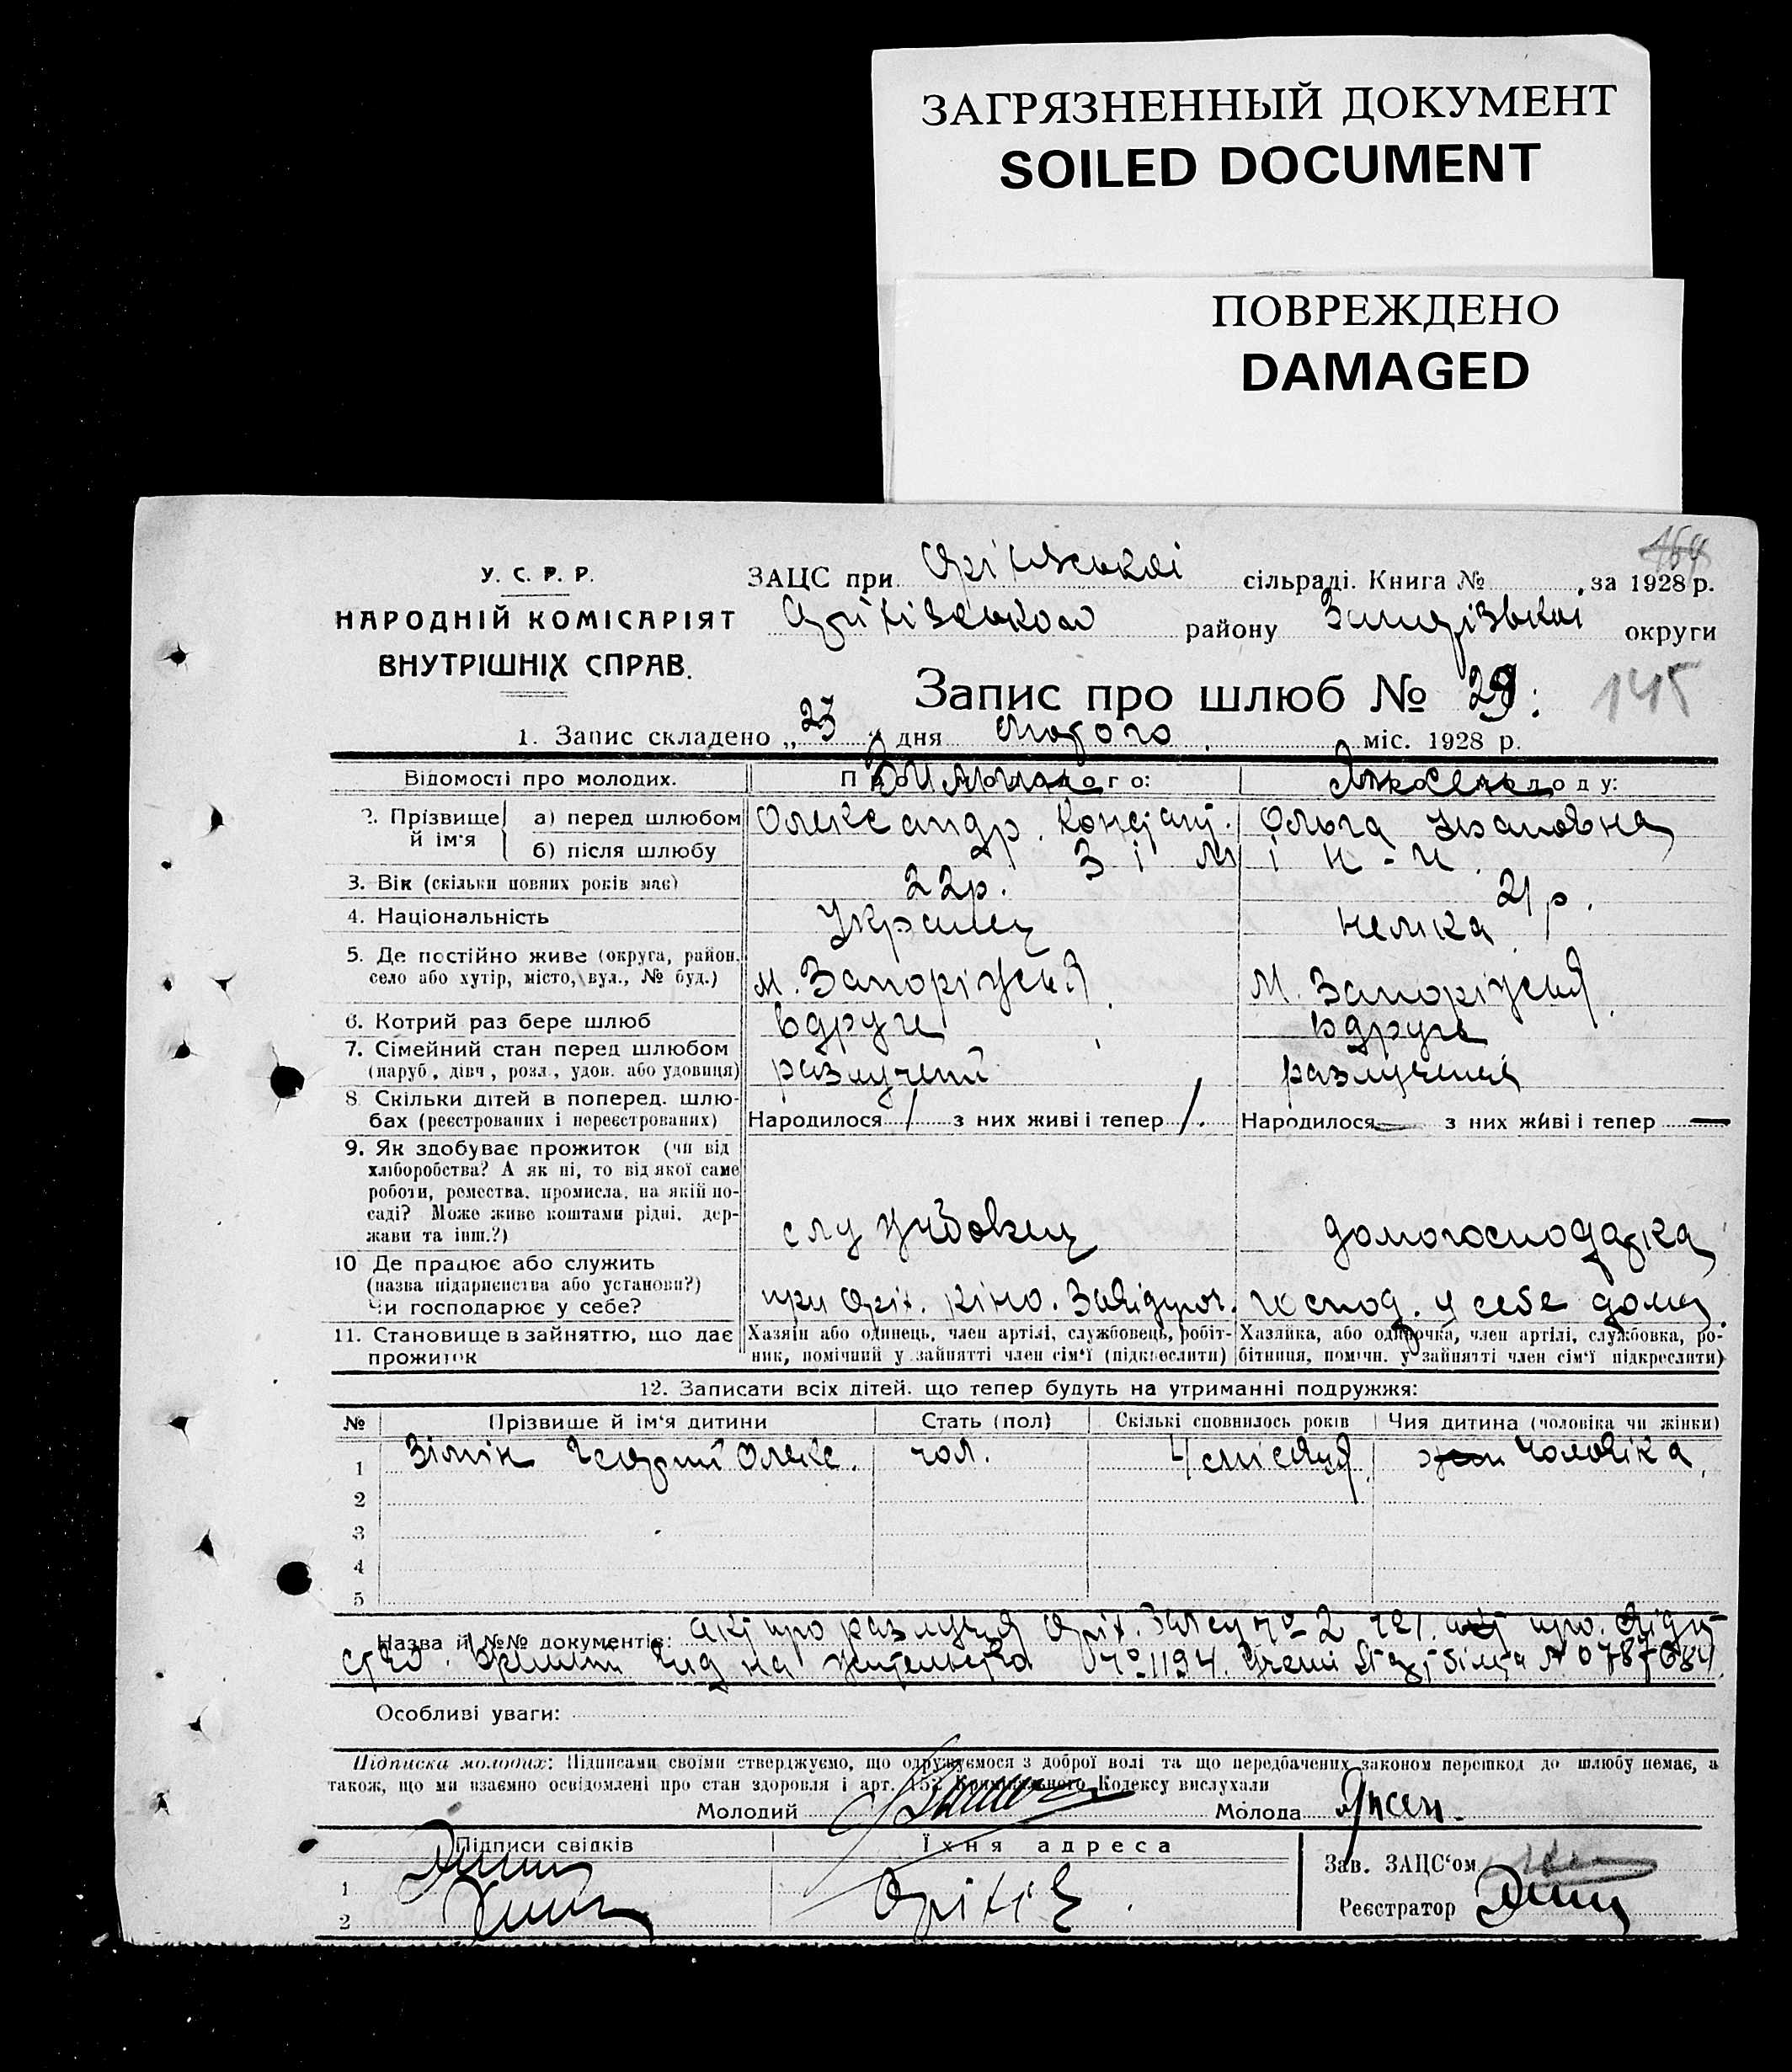 ЗАГРЯЗНЕННЫЙ ДОКУМЕНТ
SOILED DOCUMENT
ПОВРЕЖДЕНО
DAMAGED
164
У. С. Р. Р.
НАРОДНІЙ КОМІСАРІЯТ
ВНУТРІШНІХ СПРАВ.
ЗАЦС при Оріхівській сільраді. Книга № за 1928 р.
Оріхівського району Запорізької округи
Запис про шлюб № 29. 145
1. Запис складено „23" дня Лютого міс. 1928 р.
Відомості про молодих. Про молодого: Про молоду:
2. Прізвище й ім'я
а) перед шлюбом Олександр Ольга Івановна
б) після шлюбу Зімін-и
3. Вік (скільки повних років має) 22р. 21 р.
4. Національність Украинец немка
5. Де постійно живе (округа, район, село або хутір, місто, вул., № буд.) м. Запоріжжя м. Запоріжжя
6. Котрий раз бере шлюб вдруге вдруге
7. Сімейний стан перед шлюбом
(паруб., дівч., розл., удов. або удовиця) разлучений разлучена
8. Скільки дітей в поперед. шлюбах (реєстрованих і нереєстрованих) Народилося 1 з них живі і тепер 1. Народилося — з них живі і тепер —
9. Як здобуває прожиток (чи від
хліборобства? А як ні, то від якої саме
роботи, ремества, промисла, на якій по-
саді? Може живе коштами рідні, дер-
жави та інш.?) службовец домогосподарка
10 Де працює або служить
(назва підприємства або установи?)
Чи господарює у себе? при Оріх. кіно. господ. у себе дома
11. Становище в зайняттю, що дає
прожиток
Хазяїн або одинець, член артілі, службовець, робіт-
ник, помічний у зайнятті член сім'ї (підкреслити)
Хазяйка, або одиночка, член артілі, службовка, ро-
бітниця, помічн. у зайнятті член сім'ї підкреслити)
12. Записати всіх дітей, що тепер будуть на утриманні подружжя:
№ Прізвище й ім'я дитини Стать (пол) Скількі сповнилось років Чия дитина (чоловіка чи жінки)
1 Зімін Георгий Олекс. чол. 4 місяця чоловіка
2
3
4
5
Назва й №№ документів: акт про разлученя Оріх. Загсу № 2 121. про
вид на жительство № 1194. А 0787684
Особливі уваги:
Підписка молодих: Підписами своїми стверджуємо, що одружуємося з доброї волі та що передбачених законом перешкод до шлюбу немає, а
також, що ми взаємно освідомлені про стан здоровля і арт. 152 Кримінального Кодексу вислухали
Молодий Молода
Підписи свідків Їхня адреса
1
2 Оріхів
Зав. ЗАЦС'ом
Реєстратор